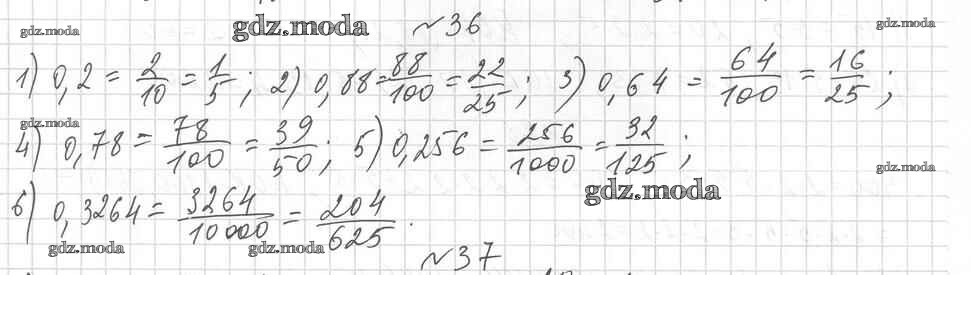 gdz.moda gdz.moda № 36 gdz.moda
1) 0,2 = 2/10 = 1/5 ; 2) 0,88 = 88/100 = 22/25 ; 3) 0,64 = 64/100 = 16/25 ;
gdz.moda
4) 0,78 = 78/100 = 39/50 ; 5) 0,256 = 256/1000 = 32/125 ;
gdz.moda gdz.moda
6) 0,3264 = 3264/10000 = 204/625 .
gdz.moda gdz.moda № 37